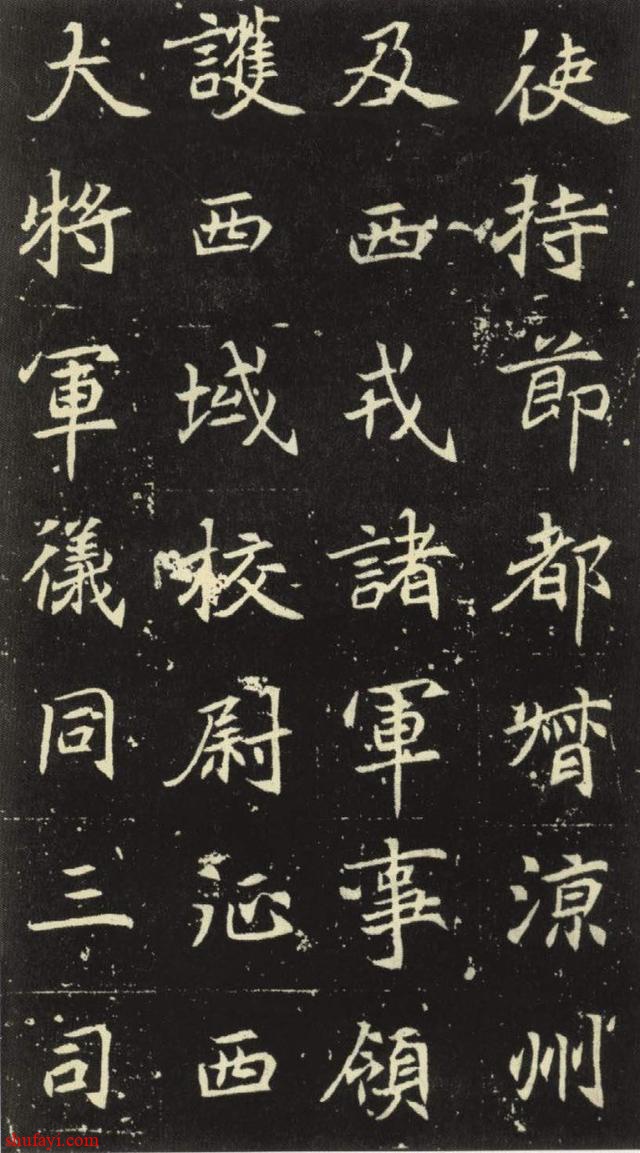 使持節都督涼州
及西戎諸軍事領
護西域校尉征西
大將軍儀同三司
shufayi.com